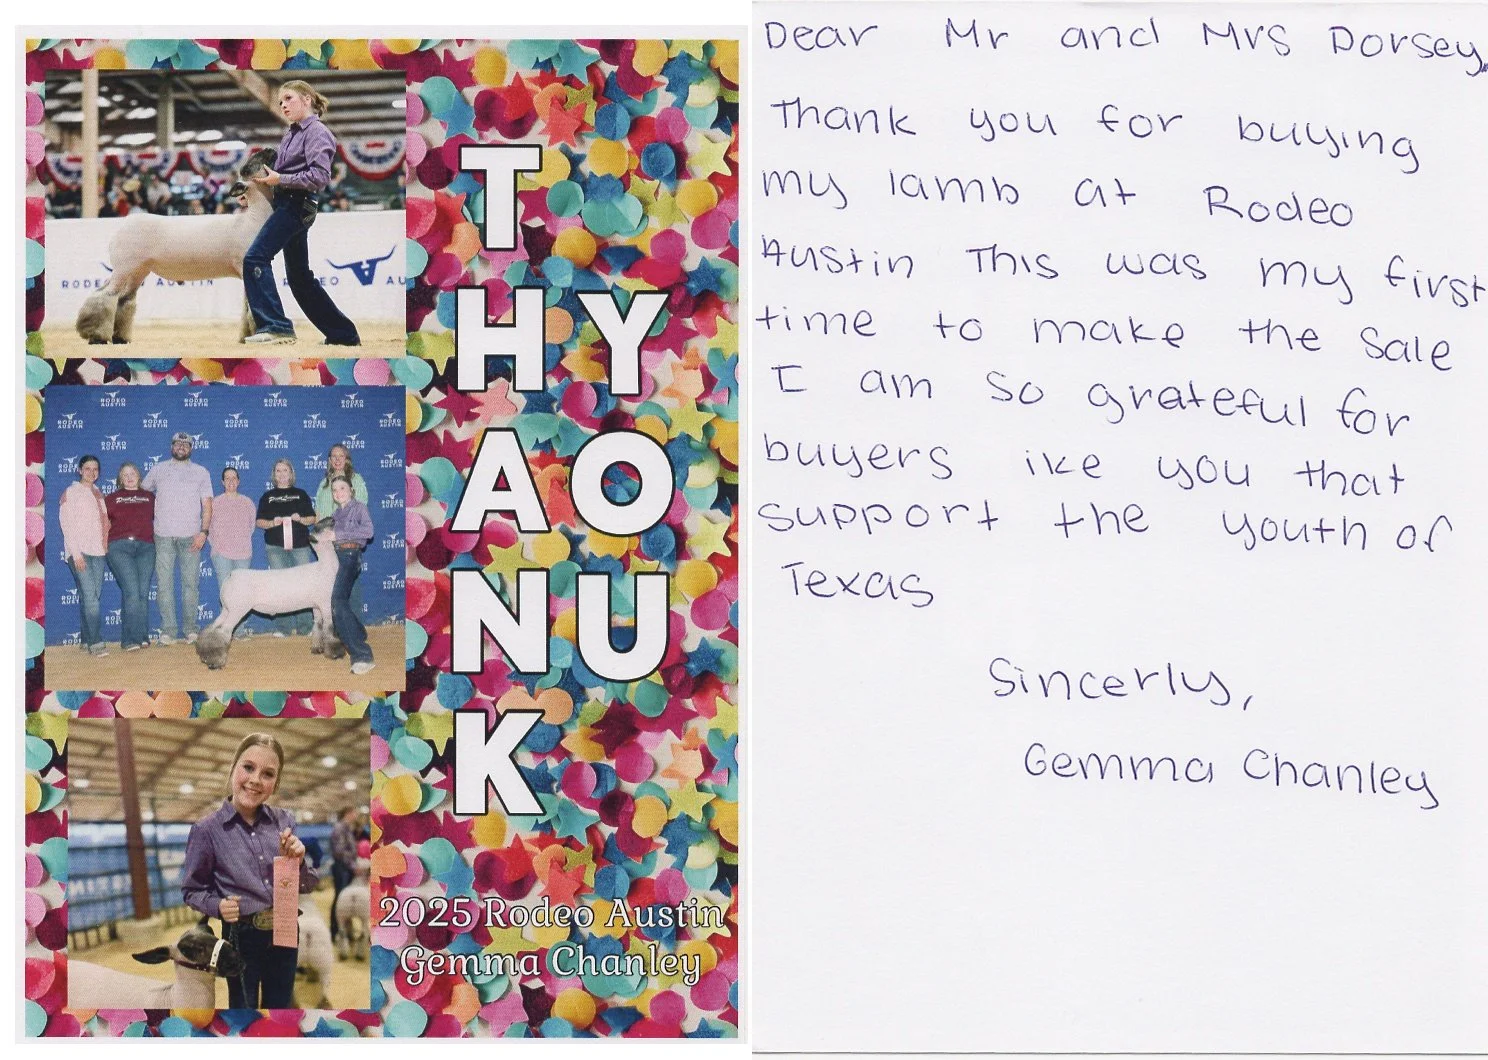 THANK
YOU
2025 Rodeo Austin
Gemma Chanley
RODEO AUSTIN
RODEO AU
RODEO
AUSTIN
Dear Mr and Mrs Dorsey,
Thank you for buying
my lamb at Rodeo
Austin This was my first
time to make the sale
I am so grateful for
buyers ike you that
support the youth of
Texas
Sincerly,
Gemma Chanley